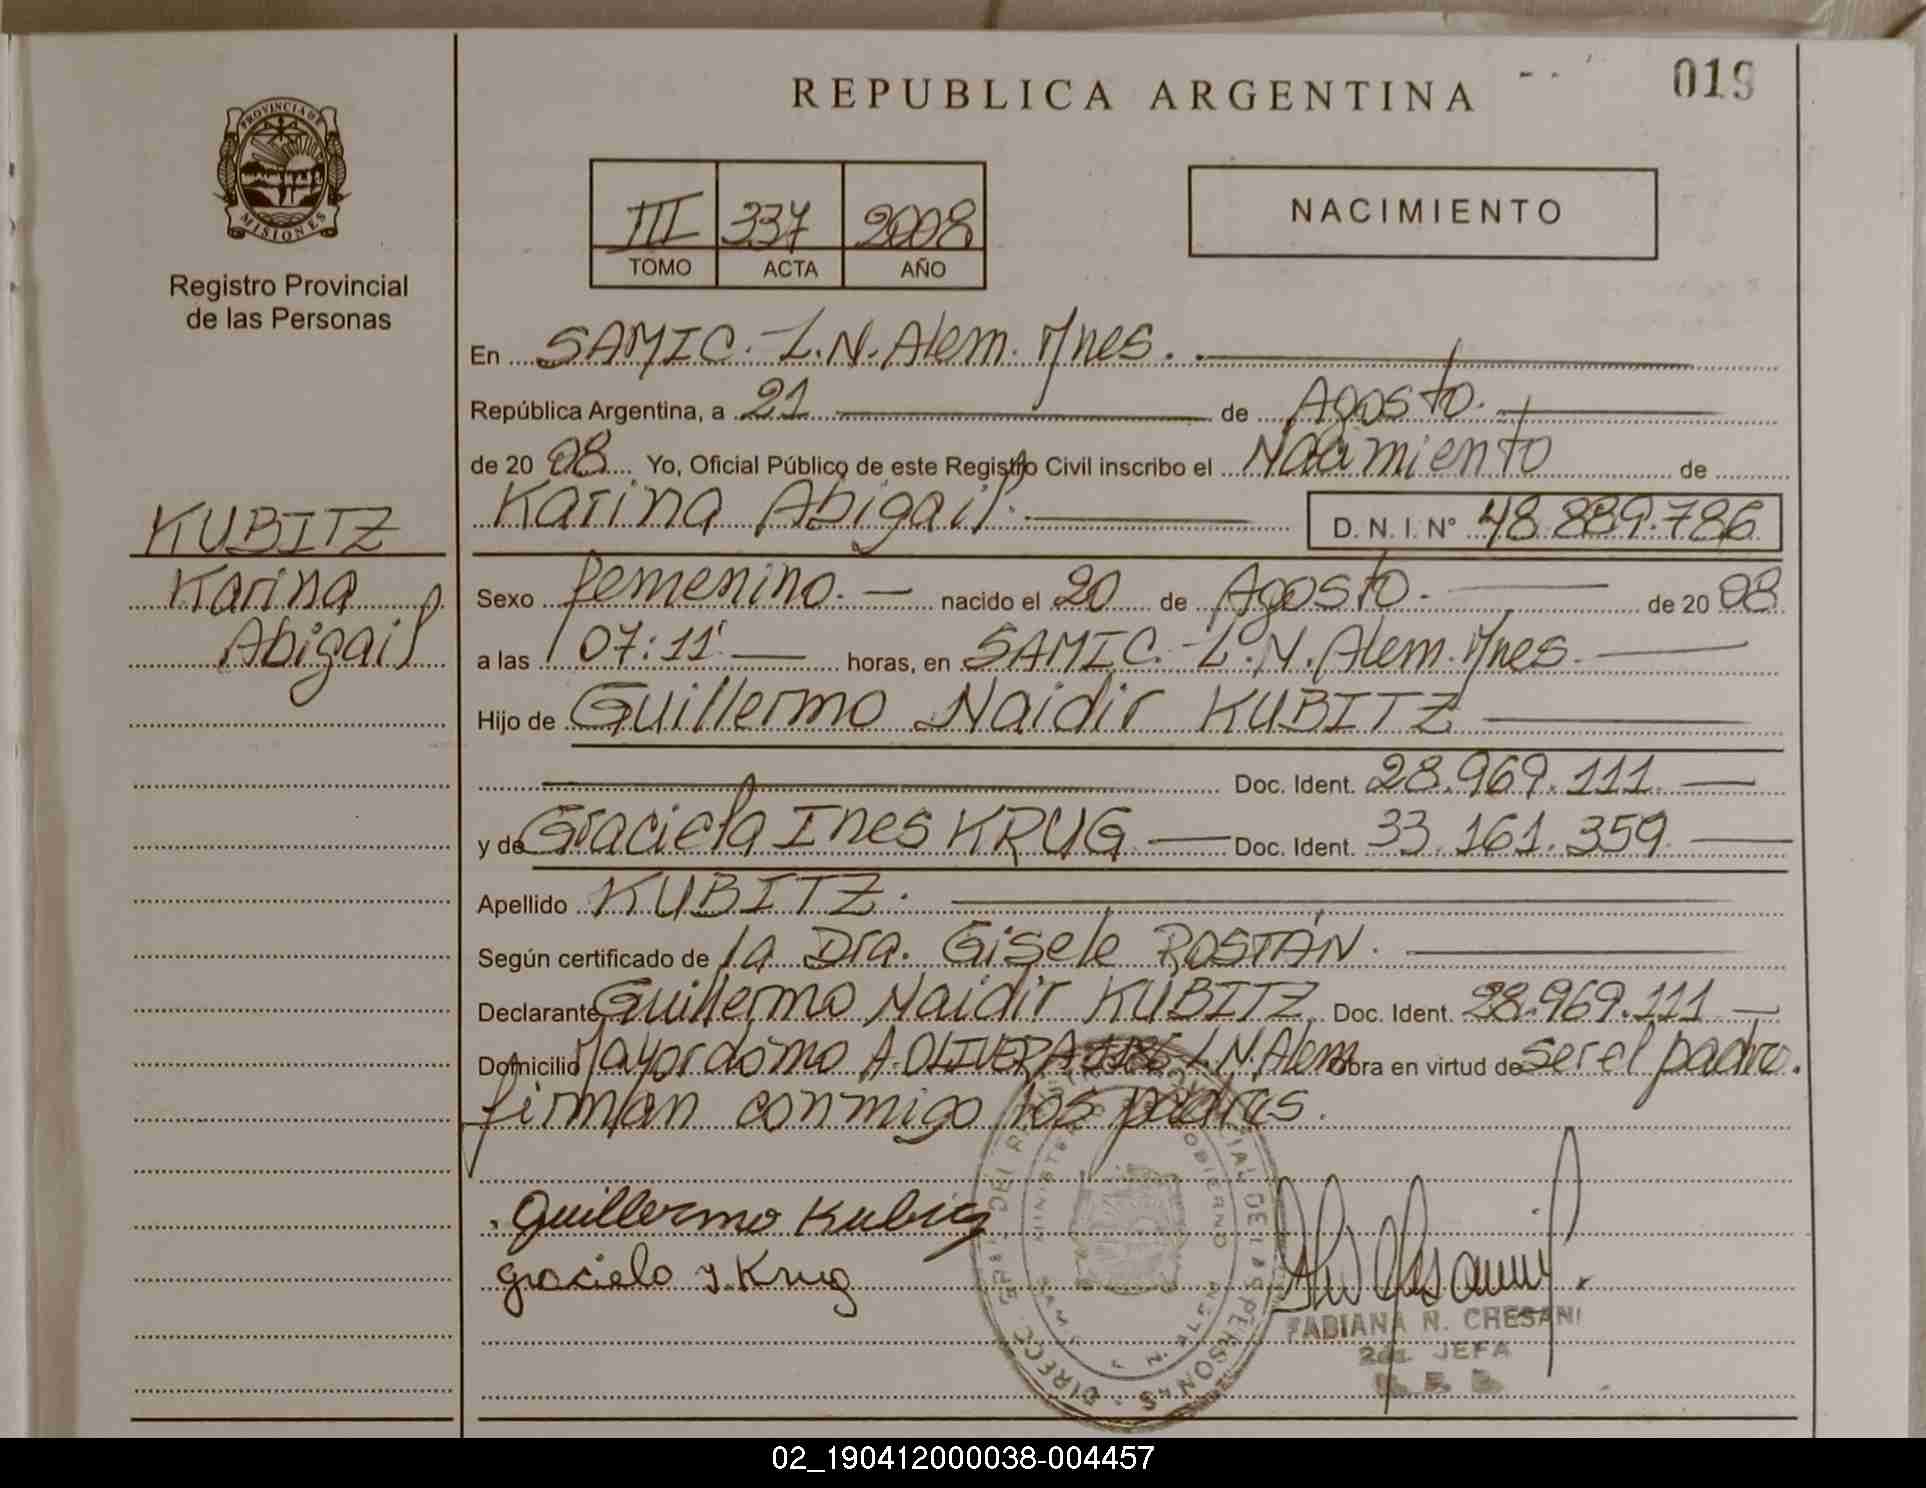 REPUBLICA ARGENTINA
019
PROVINCIA DE
MISIONES
Registro Provincial
de las Personas
III 337 2008
TOMO ACTA AÑO
NACIMIENTO
En SAMIC. L.N. Alem. Mnes.
República Argentina, a 21 de Agosto.
de 20 08 Yo, Oficial Público de este Registro Civil inscribo el Nacimiento de
Karina Abigail. D. N. I. N° 48.889.786
KUBITZ
Karina
Abigail
Sexo femenino. nacido el 20 de Agosto. de 20 08
a las 07:11' horas, en SAMIC. L.N. Alem. Mnes.
Hijo de Guillermo Naidir KUBITZ
Doc. Ident. 28.969.111.
y de Graciela Ines KRUG Doc. Ident. 33.161.359.
Apellido KUBITZ.
Según certificado de la Dra. Gisele ROSTÁN.
Declarante Guillermo Naidir KUBITZ Doc. Ident. 28.969.111
Domicilio Mayordomo A. OLIVERA L.N. Alem obra en virtud de ser el padre.
firman conmigo los padres.
Guillermo Kubitz
Graciela I. Krug
FABIANA N. CRESANI
2da. JEFA
02_190412000038-004457